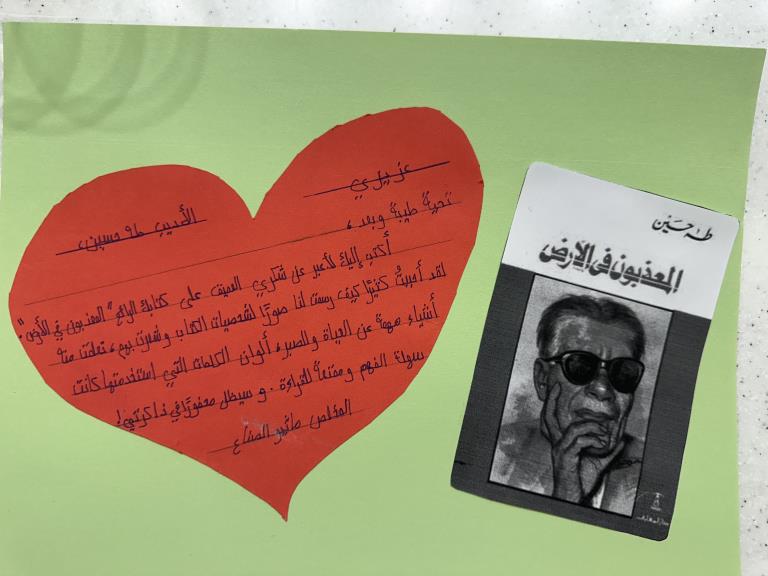 عزيزي
الأديب طه حسين،
تحية طيبة وبعد،
أكتب إليك لأعبر عن شكري العميق على كتابك الرائع "المعذبون في الأرض".
لقد أحببتُ كثيرًا كيف رسمت لنا صورًا لشخصيات الكتاب وشعرت بهم، تعلمت منه
أشياء مهمة عن الحياة والصبر، ألوان الكلمات التي استخدمتها كانت
سهلة الفهم وممتعة للقراءة. وسيظل محفورًا في ذاكرتي!
المخلص
طه حسين
المعذبون في الأرض